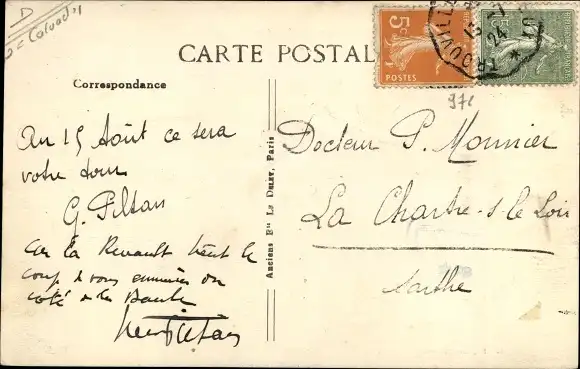 D
= Calvados
CARTE POSTALE
Correspondance
5c
POSTES
TROUVILLE
13 -7
24
37c
Au 15 Août ce sera
votre tour
G. Piltan
Car la Renault tient le
coup & vous emmènera du
côté de la
Docteur P. Mounier
La Chartre-s-le Loir
Sarthe
Anciens Ets Le Deley, Paris